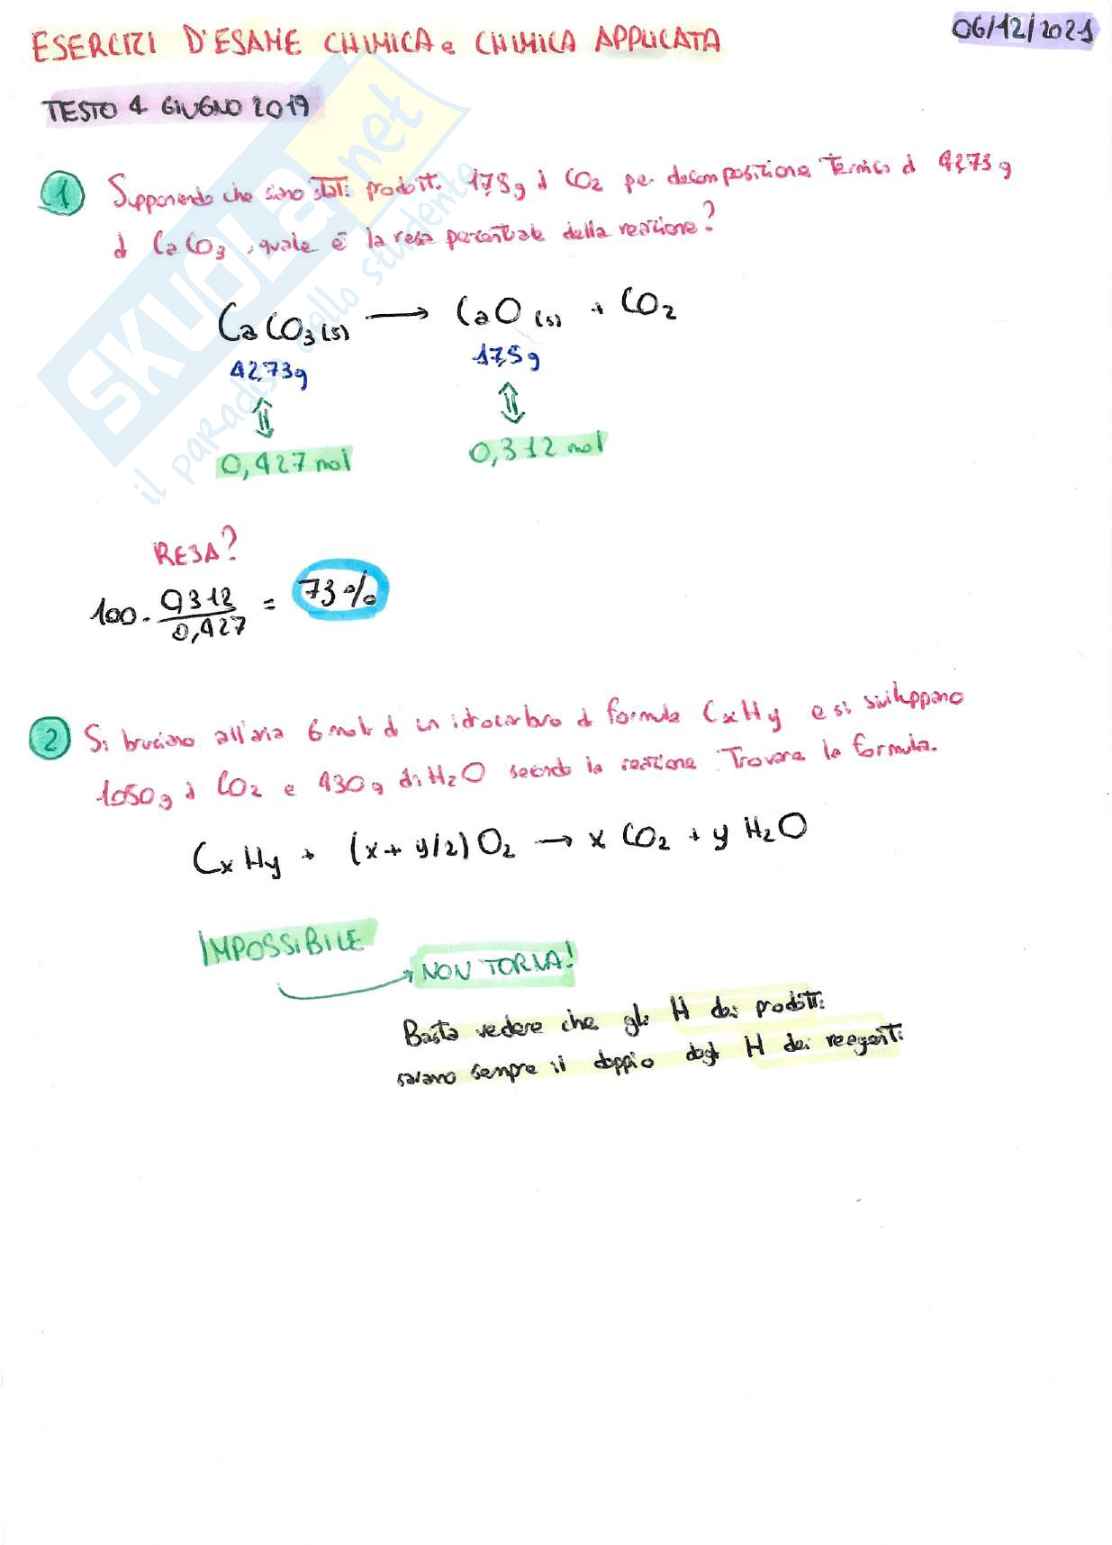 ESERCIZI D'ESAME CHIMICA e CHIMICA APPLICATA
06/12/2021
TESTO 4 GIUGNO 2019
1 Supponendo che siano stati prodotti 17,5g di CO2 per decomposizione termica di 42,73g
di CaCO3, quale è la resa percentuale della reazione?
CaCO3(s) → CaO(s) + CO2
42,73g 17,5g
0,427 mol 0,312 mol
RESA?
100 · 0,312 / 0,427 = 73%
2 Si bruciano all'aria 6 moli di un idrocarburo di formula CxHy e si sviluppano
1050g di CO2 e 430g di H2O secondo la reazione. Trovare la formula.
CxHy + (x+y/2)O2 → x CO2 + y H2O
IMPOSSIBILE
NON TORNA!
Basta vedere che gli H dei prodotti
saranno sempre il doppio degli H dei reagenti
SKUOLA.net
il paradiso dello studente